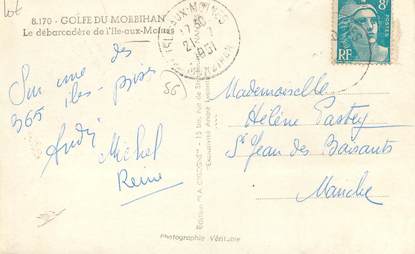 lot
8.170 - GOLFE DU MORBIHAN
Le débarcadère de l'Ile-aux-Moines
ISLE-AUX-MOINES
17 30
21-7
1951
MORBIHAN
8F
POSTES
RF
56
Sur une des
365 îles - bises
André
Michel
Reine
Mademoiselle
Hélène
St Jean des Baisants
Manche
Edition "LA CIGOGNE"
Photographie Véritable